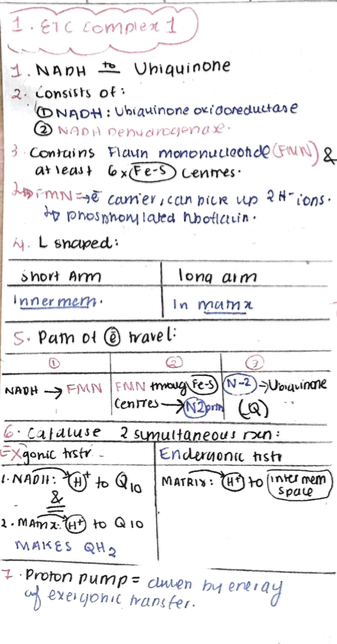 1. ETC Complex 1
1. NADH to Ubiquinone
2. Consists of:
① NADH: Ubiquinone oxidoreductase
② NADH Dehydrogenase.
3. Contains Flavin mononucleotide (FMN) &
at least 6x Fe-S Centres.
FMN → e⁻ carrier, can pick up 2H⁺ ions.
↳ phosphorylated riboflavin.
4. L shaped:
Short Arm | long arm
Inner mem. | In matrix
5. Path of e⁻ travel:
① ② ③
NADH → FMN | FMN through Fe-S | N-2 → Ubiquinone
Centres → N2 prtn | (Q)
6. Catalyse 2 simultaneous rxn:
Exgonic tnsfr | Endergonic tnsfr
1. NADH: H⁺ to Q10 | MATRIX: H⁺ to inter mem
& | space
2. Matrix: H⁺ to Q10
MAKES QH2
7. Proton pump = driven by energy
of exergonic transfer.